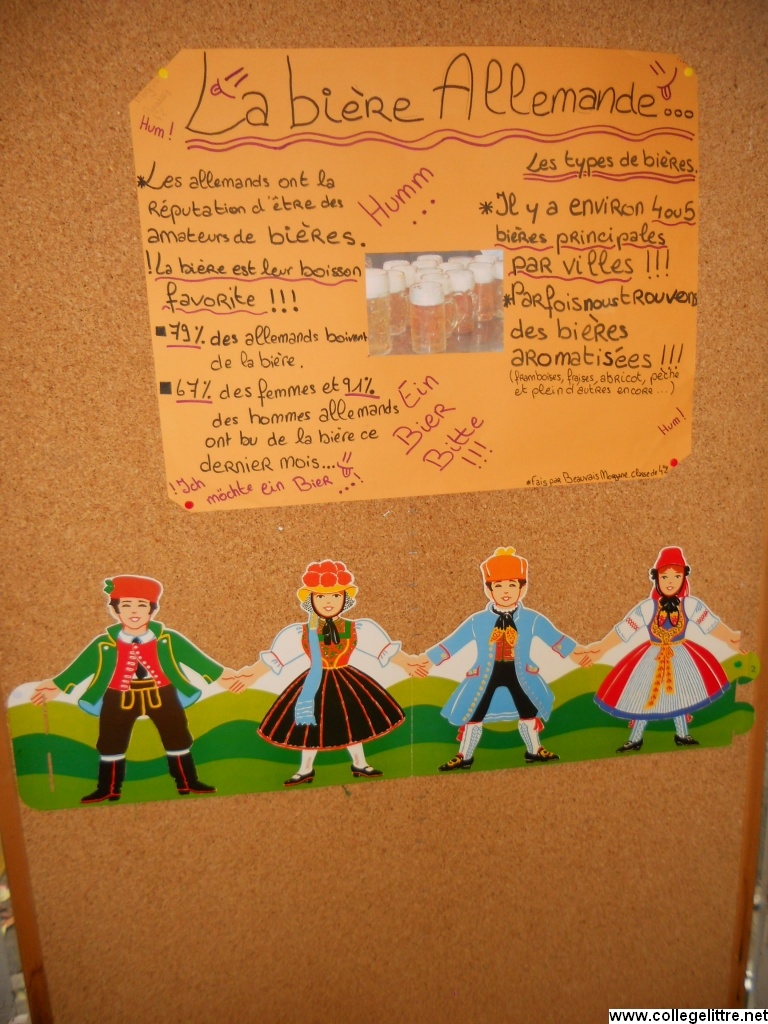 La bière Allemande...
Hum !
*Les allemands ont la
Réputation d'être des
amateurs de bières.
! La bière est leur boisson
favorite !!!
79% des allemands boivent
de la bière.
67% des femmes et 91%
des hommes allemands
ont bu de la bière ce
dernier mois....
! Ich
möchte ein Bier ...!
Humm
...
Ein
Bier
Bitte
!!!
Les types de bières.
*Il y a environ 4 ou 5
bières principales
par villes !!!
*Parfois nous trouvons
des bières
aromatisées !!!
(framboises, fraises, abricot, pêche
et plein d'autres encore ...)
Hum !
*Fais par Beauvais Morgane classe de 4°
2
www.collegelittre.net